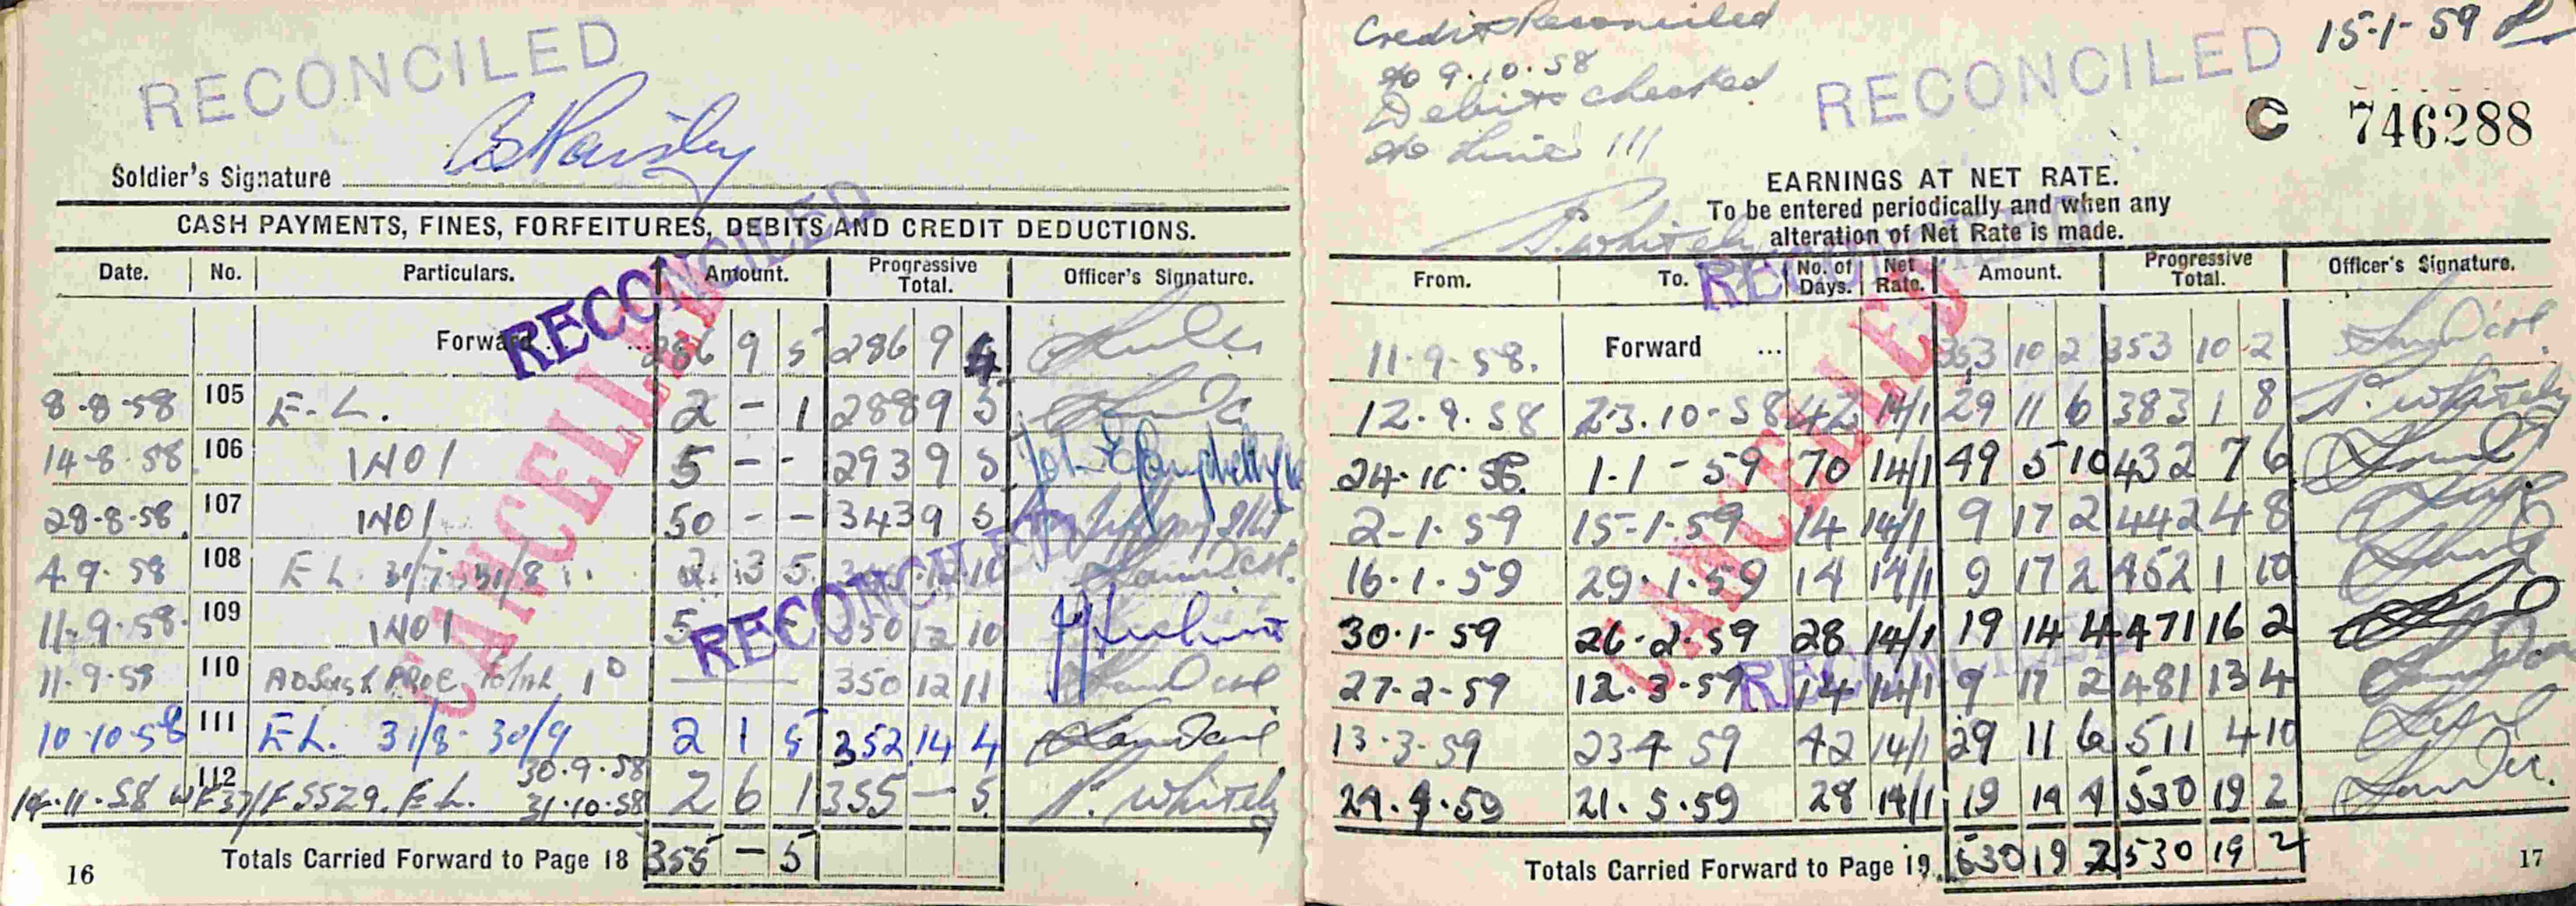 RECONCILED
Soldier's Signature
CASH PAYMENTS, FINES, FORFEITURES, DEBITS AND CREDIT DEDUCTIONS.
RECONCILED
CANCELLED
Date. No. Particulars. Amount. Progressive Total. Officer's Signature.
Forward ... 286 9 5 286 9 4
8-8-58 105 E-L. 2 - 1 288 9 5
14-8-58 106 1NO1 5 - - 293 9 5
28-8-58. 107 1NO1 50 - - 343 9 5
4.9.58 108 E L. 31/7 - 31/8 2. 3 5
11-9-58. 109 1NO1 5 350 12 10
RECONCILED
11.9.58 110 1D 350 12 11
10-10-58 111 E L. 31/8 - 30/9 2 1 5 352 14 4
14.11.58 112 F.L. 30.9.58 31.10.58 2 6 1 355 - 5. P. Whitely
Totals Carried Forward to Page 18 355 - 5
16
Credit Reconciled
to 9.10.58
Debits checked
to Line 111
P. Whitely
RECONCILED
15-1-59
C 746288
EARNINGS AT NET RATE.
To be entered periodically and when any
alteration of Net Rate is made.
RECONCILED
CANCELLED
From. To. No. of Days. Net Rate. Amount. Progressive Total. Officer's Signature.
11-9-58. Forward ... 353 10 2 353 10 2
12.9.58 23.10-58 42 14/1 29 11 6 383 1 8 P. Whitely
24.10.58. 1-1-59 70 14/1 49 5 10 432 7 6
2-1-59 15-1-59 14 14/1 9 17 2 442 4 8
16.1.59 29.1.59 14 14/1 9 17 2 452 1 10
30.1-59 26-2-59 28 14/1 19 14 4 471 16 2
RECONCILED
27-2-59 12.3-59 14 14/1 9 17 2 481 13 4
13.3-59 23 4 59 42 14/1 29 11 6 511 4 10
24.4.59 21.5.59 28 14/1 19 14 4 530 19 2
Totals Carried Forward to Page 19. 530 19 2 530 19 2
17